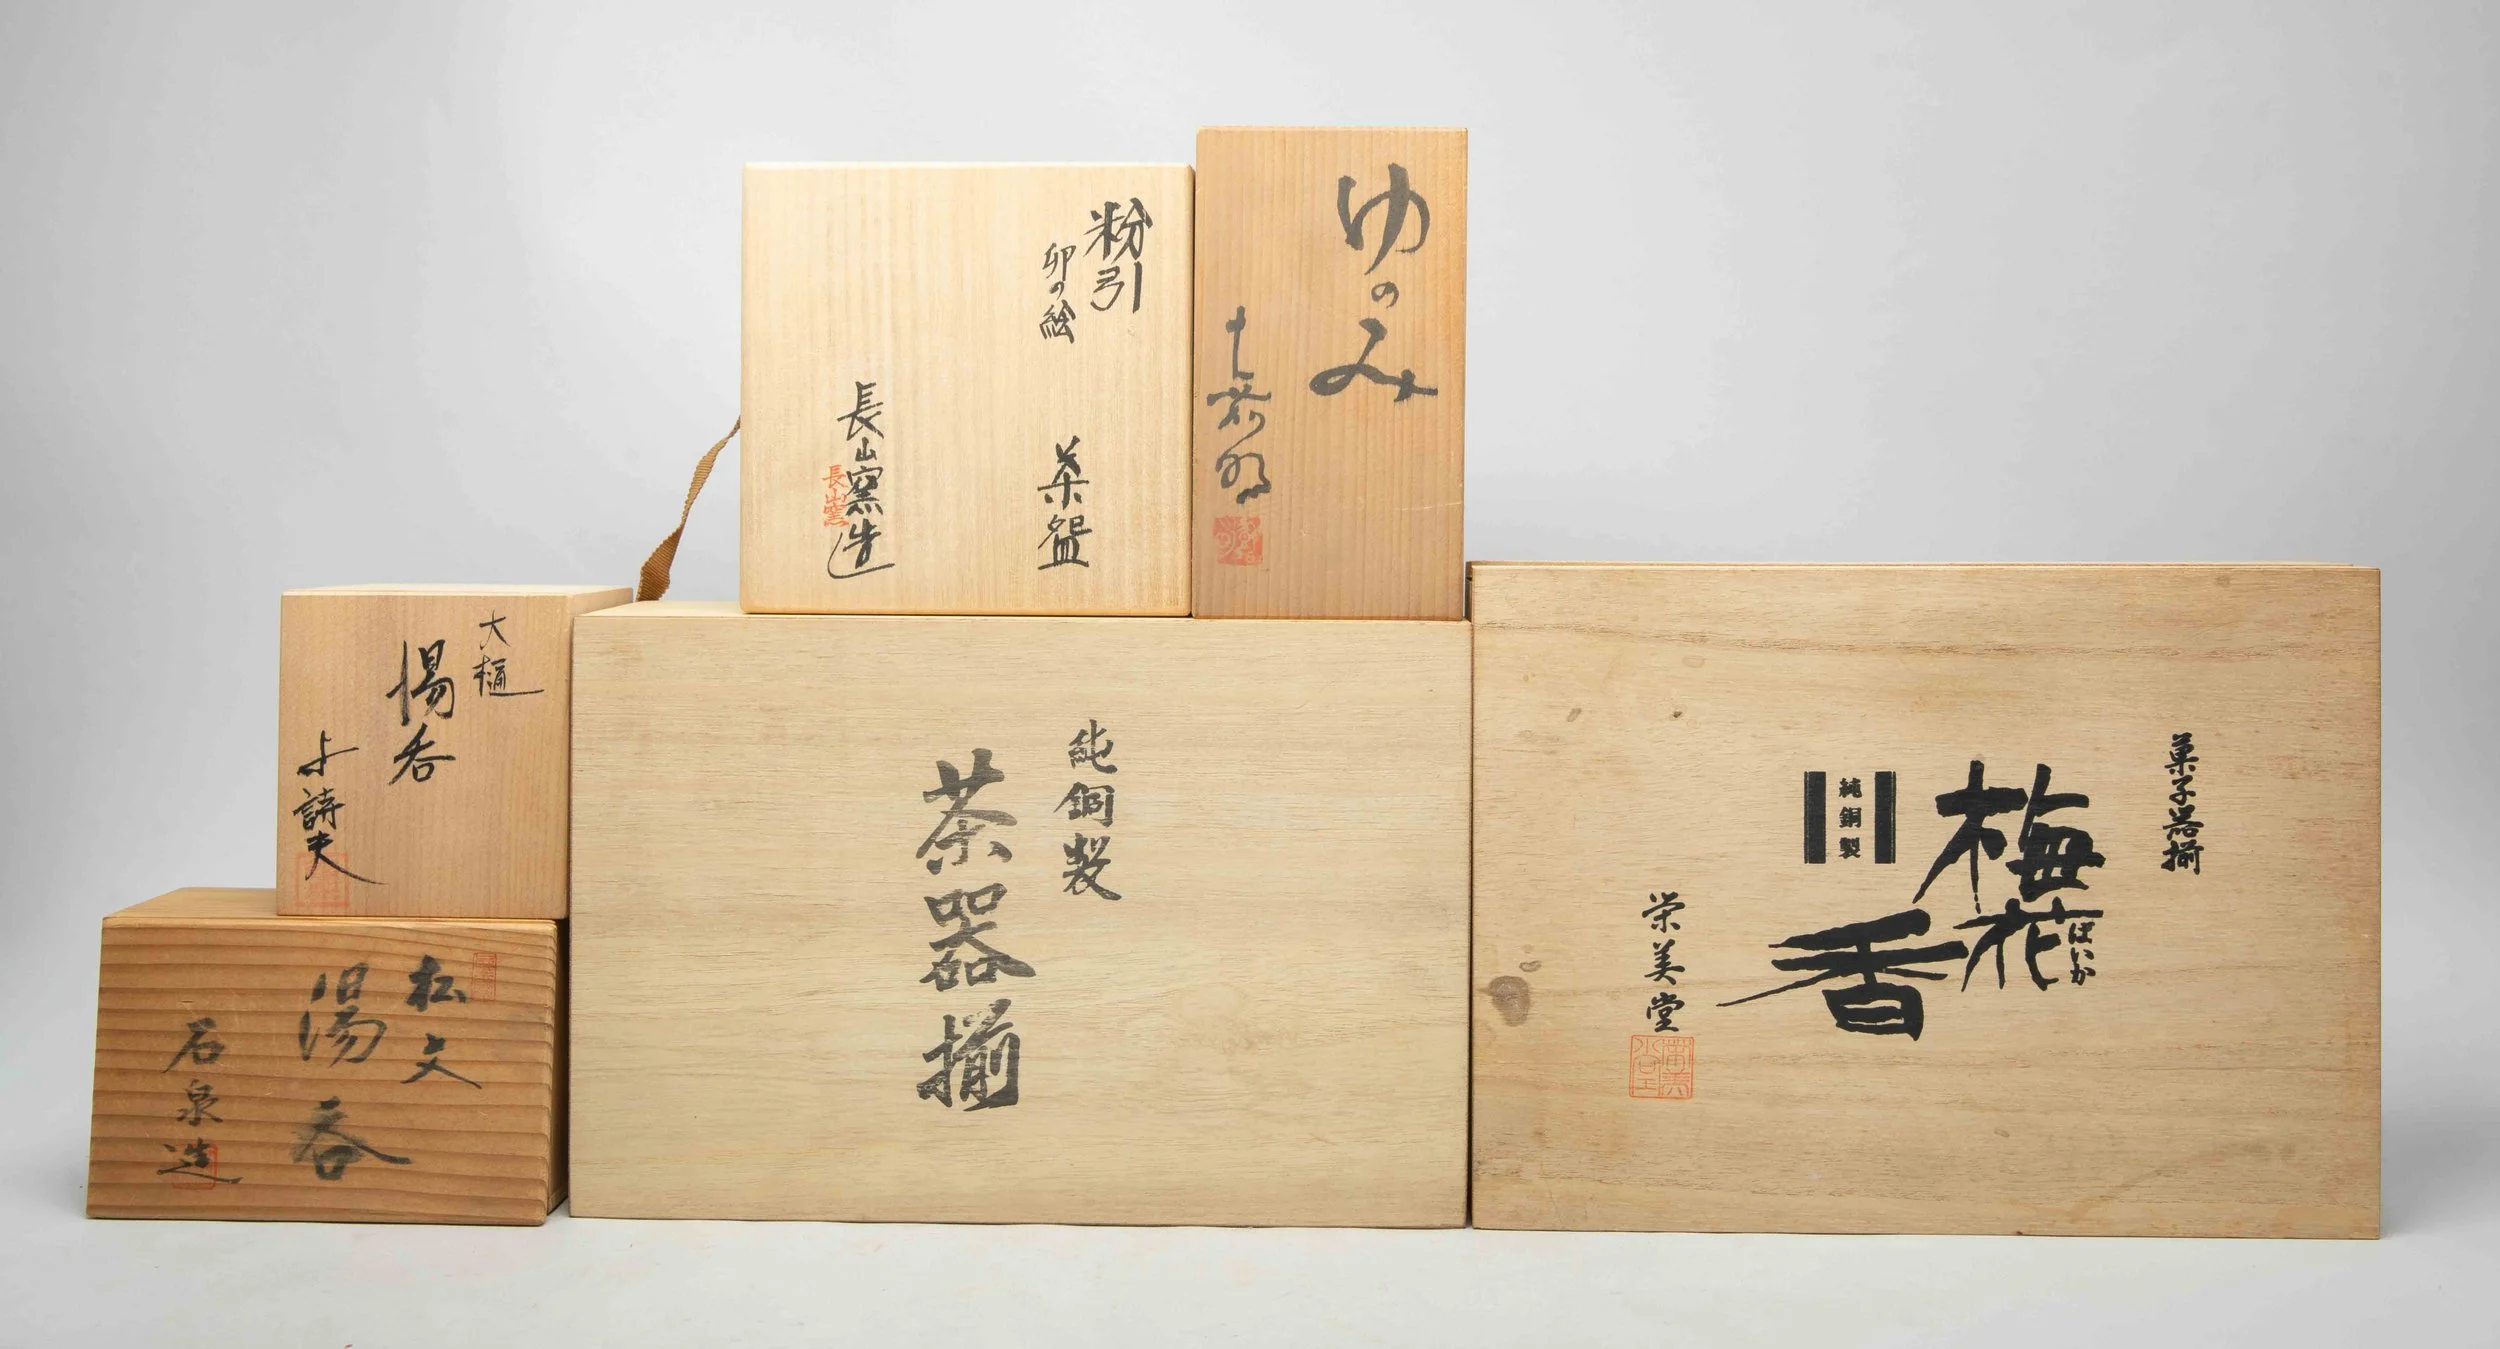 粉引
卯の絵
茶盌
長山窯造
長山窯
ゆのみ
大樋
湯呑
詩夫
松文
湯呑
石泉造
純銅製
茶器揃
菓子器揃
梅花香
ばいか
純銅製
栄美堂